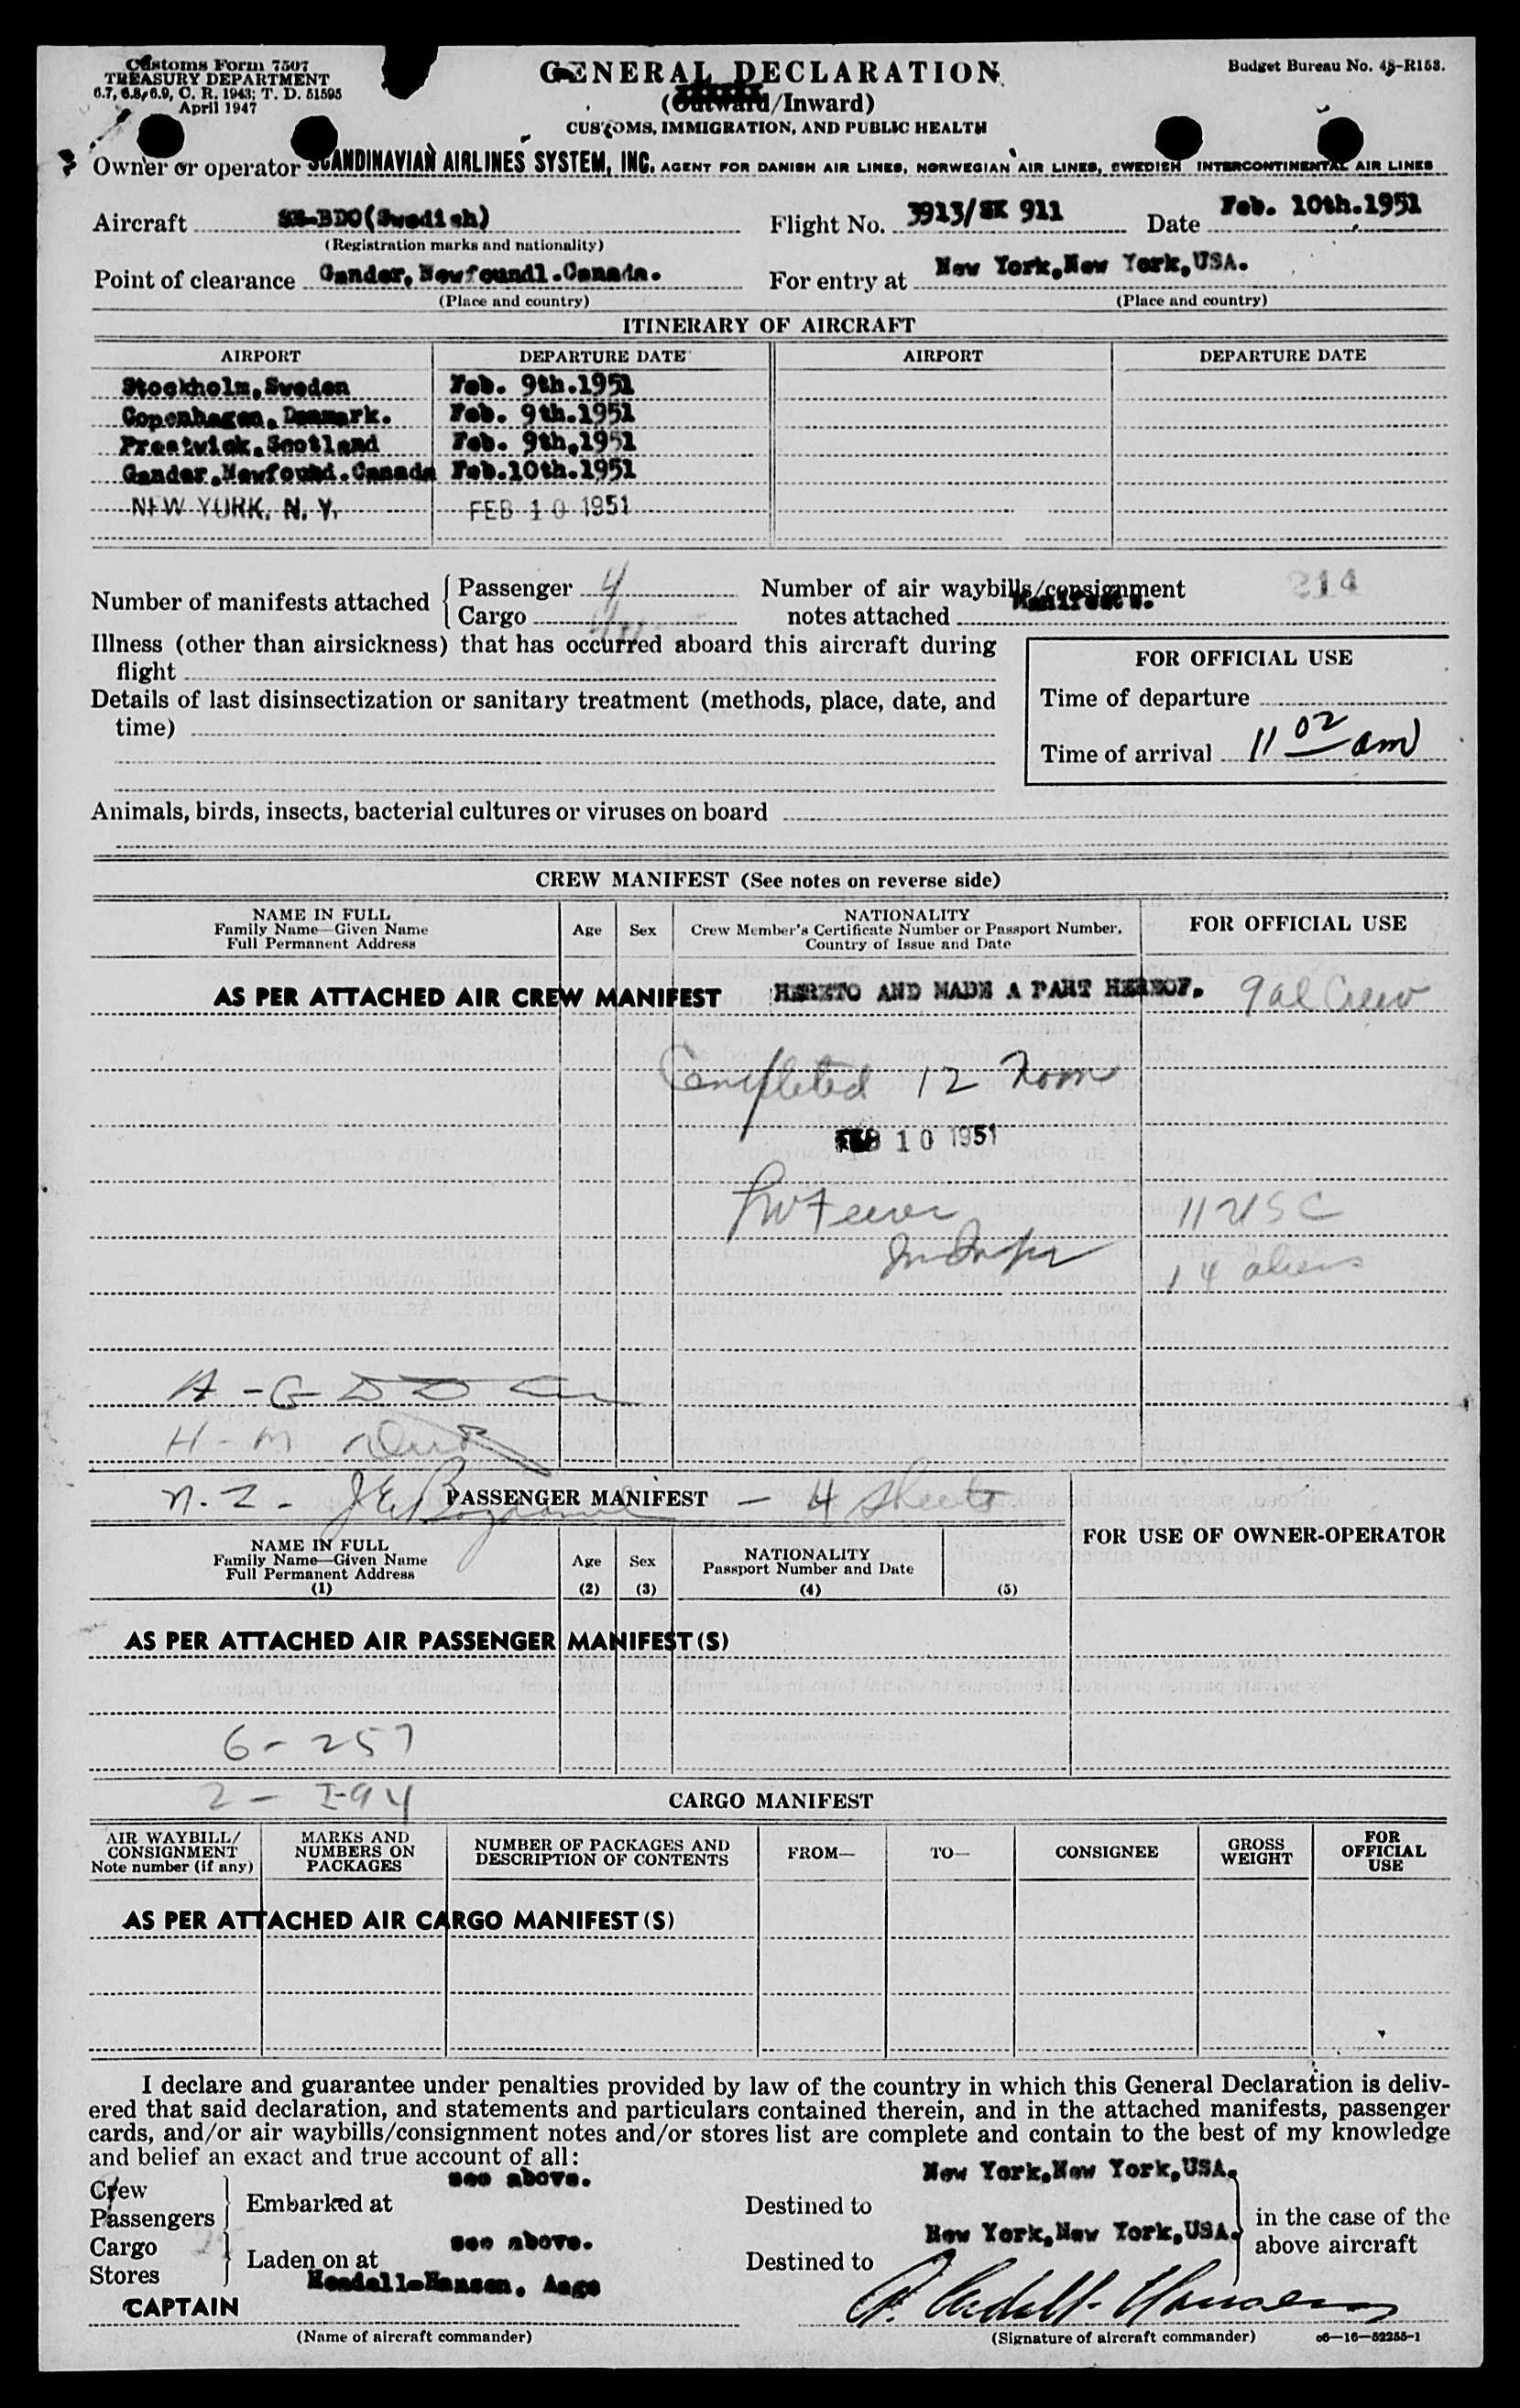 Customs Form 7507
TREASURY DEPARTMENT
6.7, 6.8, 6.9, C. R. 1943; T. D. 51595
April 1947
GENERAL DECLARATION
(Outward/Inward)
CUSTOMS, IMMIGRATION, AND PUBLIC HEALTH
Budget Bureau No. 48-R153.
Owner or operator SCANDINAVIAN AIRLINES SYSTEM, INC. AGENT FOR DANISH AIR LINES, NORWEGIAN AIR LINES, SWEDISH INTERCONTINENTAL AIR LINES
Aircraft SE-BDO(Swedish) Flight No. 3913/SK 911 Date Feb. 10th.1951
(Registration marks and nationality)
Point of clearance Gander, Newfoundl.Canada. For entry at New York,New York,USA.
(Place and country) (Place and country)
ITINERARY OF AIRCRAFT
AIRPORT DEPARTURE DATE AIRPORT DEPARTURE DATE
Stockholm,Sweden Feb. 9th.1951
Copenhagen, Denmark. Feb. 9th.1951
Prestwick,Scotland Feb. 9th,1951
Gander,Newfound.Canada Feb.10th.1951
NEW YORK, N. Y. FEB 10 1951
Number of manifests attached Passenger 4 Number of air waybills/consignment 214
Cargo notes attached Manifests.
Illness (other than airsickness) that has occurred aboard this aircraft during
flight
FOR OFFICIAL USE
Details of last disinsectization or sanitary treatment (methods, place, date, and
time)
Time of departure
Time of arrival 11 02 am
Animals, birds, insects, bacterial cultures or viruses on board
CREW MANIFEST (See notes on reverse side)
NAME IN FULL
Family Name—Given Name
Full Permanent Address
Age Sex
NATIONALITY
Crew Member's Certificate Number or Passport Number,
Country of Issue and Date
FOR OFFICIAL USE
AS PER ATTACHED AIR CREW MANIFEST HERETO AND MADE A PART HEREOF. 9 al Crew
Completed 12 Noon
FEB 10 1951
11 USC
14 aliens
A - G
H - M
N. Z - PASSENGER MANIFEST — 4 sheets
FOR USE OF OWNER-OPERATOR
NAME IN FULL
Family Name—Given Name
Full Permanent Address
(1)
Age
(2)
Sex
(3)
NATIONALITY
Passport Number and Date
(4) (5)
AS PER ATTACHED AIR PASSENGER MANIFEST(S)
6 - 257
2 - I-94
CARGO MANIFEST
AIR WAYBILL/
CONSIGNMENT
Note number (if any)
MARKS AND
NUMBERS ON
PACKAGES
NUMBER OF PACKAGES AND
DESCRIPTION OF CONTENTS
FROM— TO— CONSIGNEE
GROSS
WEIGHT
FOR
OFFICIAL
USE
AS PER ATTACHED AIR CARGO MANIFEST(S)
I declare and guarantee under penalties provided by law of the country in which this General Declaration is deliv-
ered that said declaration, and statements and particulars contained therein, and in the attached manifests, passenger
cards, and/or air waybills/consignment notes and/or stores list are complete and contain to the best of my knowledge
and belief an exact and true account of all:
Crew
Passengers
Embarked at see above. Destined to New York,New York,USA.
in the case of the
above aircraft
Cargo
Stores
Laden on at see above. Destined to New York,New York,USA.
CAPTAIN Hendell-Hansen, Aage
(Name of aircraft commander) (Signature of aircraft commander) c6—16—52255-1